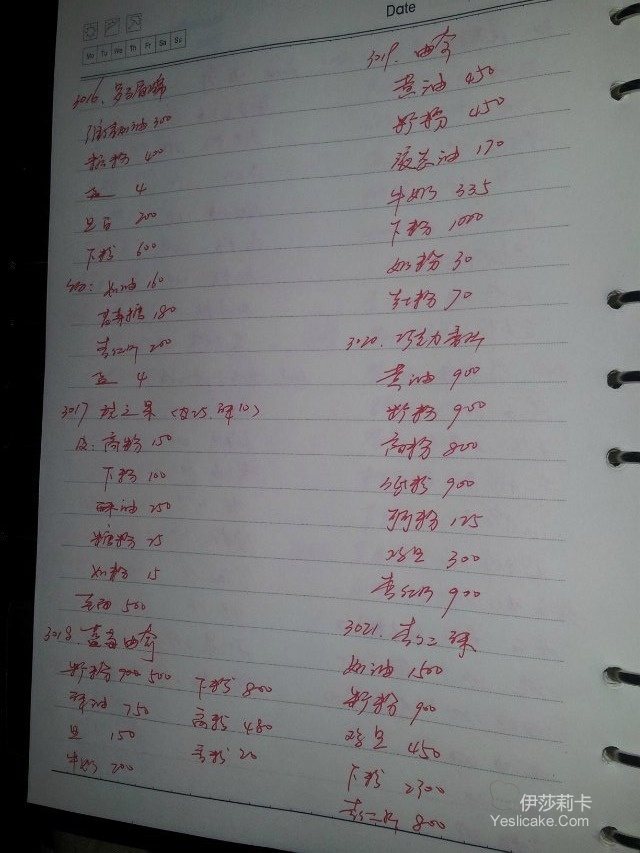 Date
Mo Tu We Th Fr Sa Su
3016.
300
糖粉 400
盐 4
蛋白 200
下粉 600
奶油 160
180
杏仁片 200
盐 4
3017 果 (皮25. 酥10)
皮: 高粉 150
下粉 100
酥油 250
糖粉 25
奶粉 15
500
3018. 蓝莓曲奇
糖粉 900 500
酥油 750
蛋 150
牛奶 200
下粉 800
高粉 480
20
3019. 曲奇
黄油 450
糖粉 450
液态油 170
牛奶 335
下粉 1000
奶粉 30
杏仁粉 70
3020. 巧克力杏片
黄油 900
糖粉 900
高粉 800
低粉 900
125
鸡蛋 300
杏仁片 900
3021. 杏仁酥
奶油 1500
糖粉 900
鸡蛋 450
下粉 2300
杏仁片 800
伊莎莉卡
Yeslicake.Com